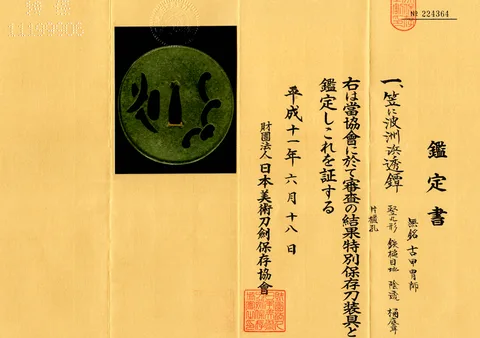 № 224364
鑑定書
一、笠に波洲浜透鐔
無銘 古甲冑師
竪丸形 鉄槌目地 陰透
片櫃孔
右は當協會に於て審査の結果特別保存刀装具と
鑑定しこれを証する
平成十一年六月十八日
財團法人日本美術刀劍保存協會